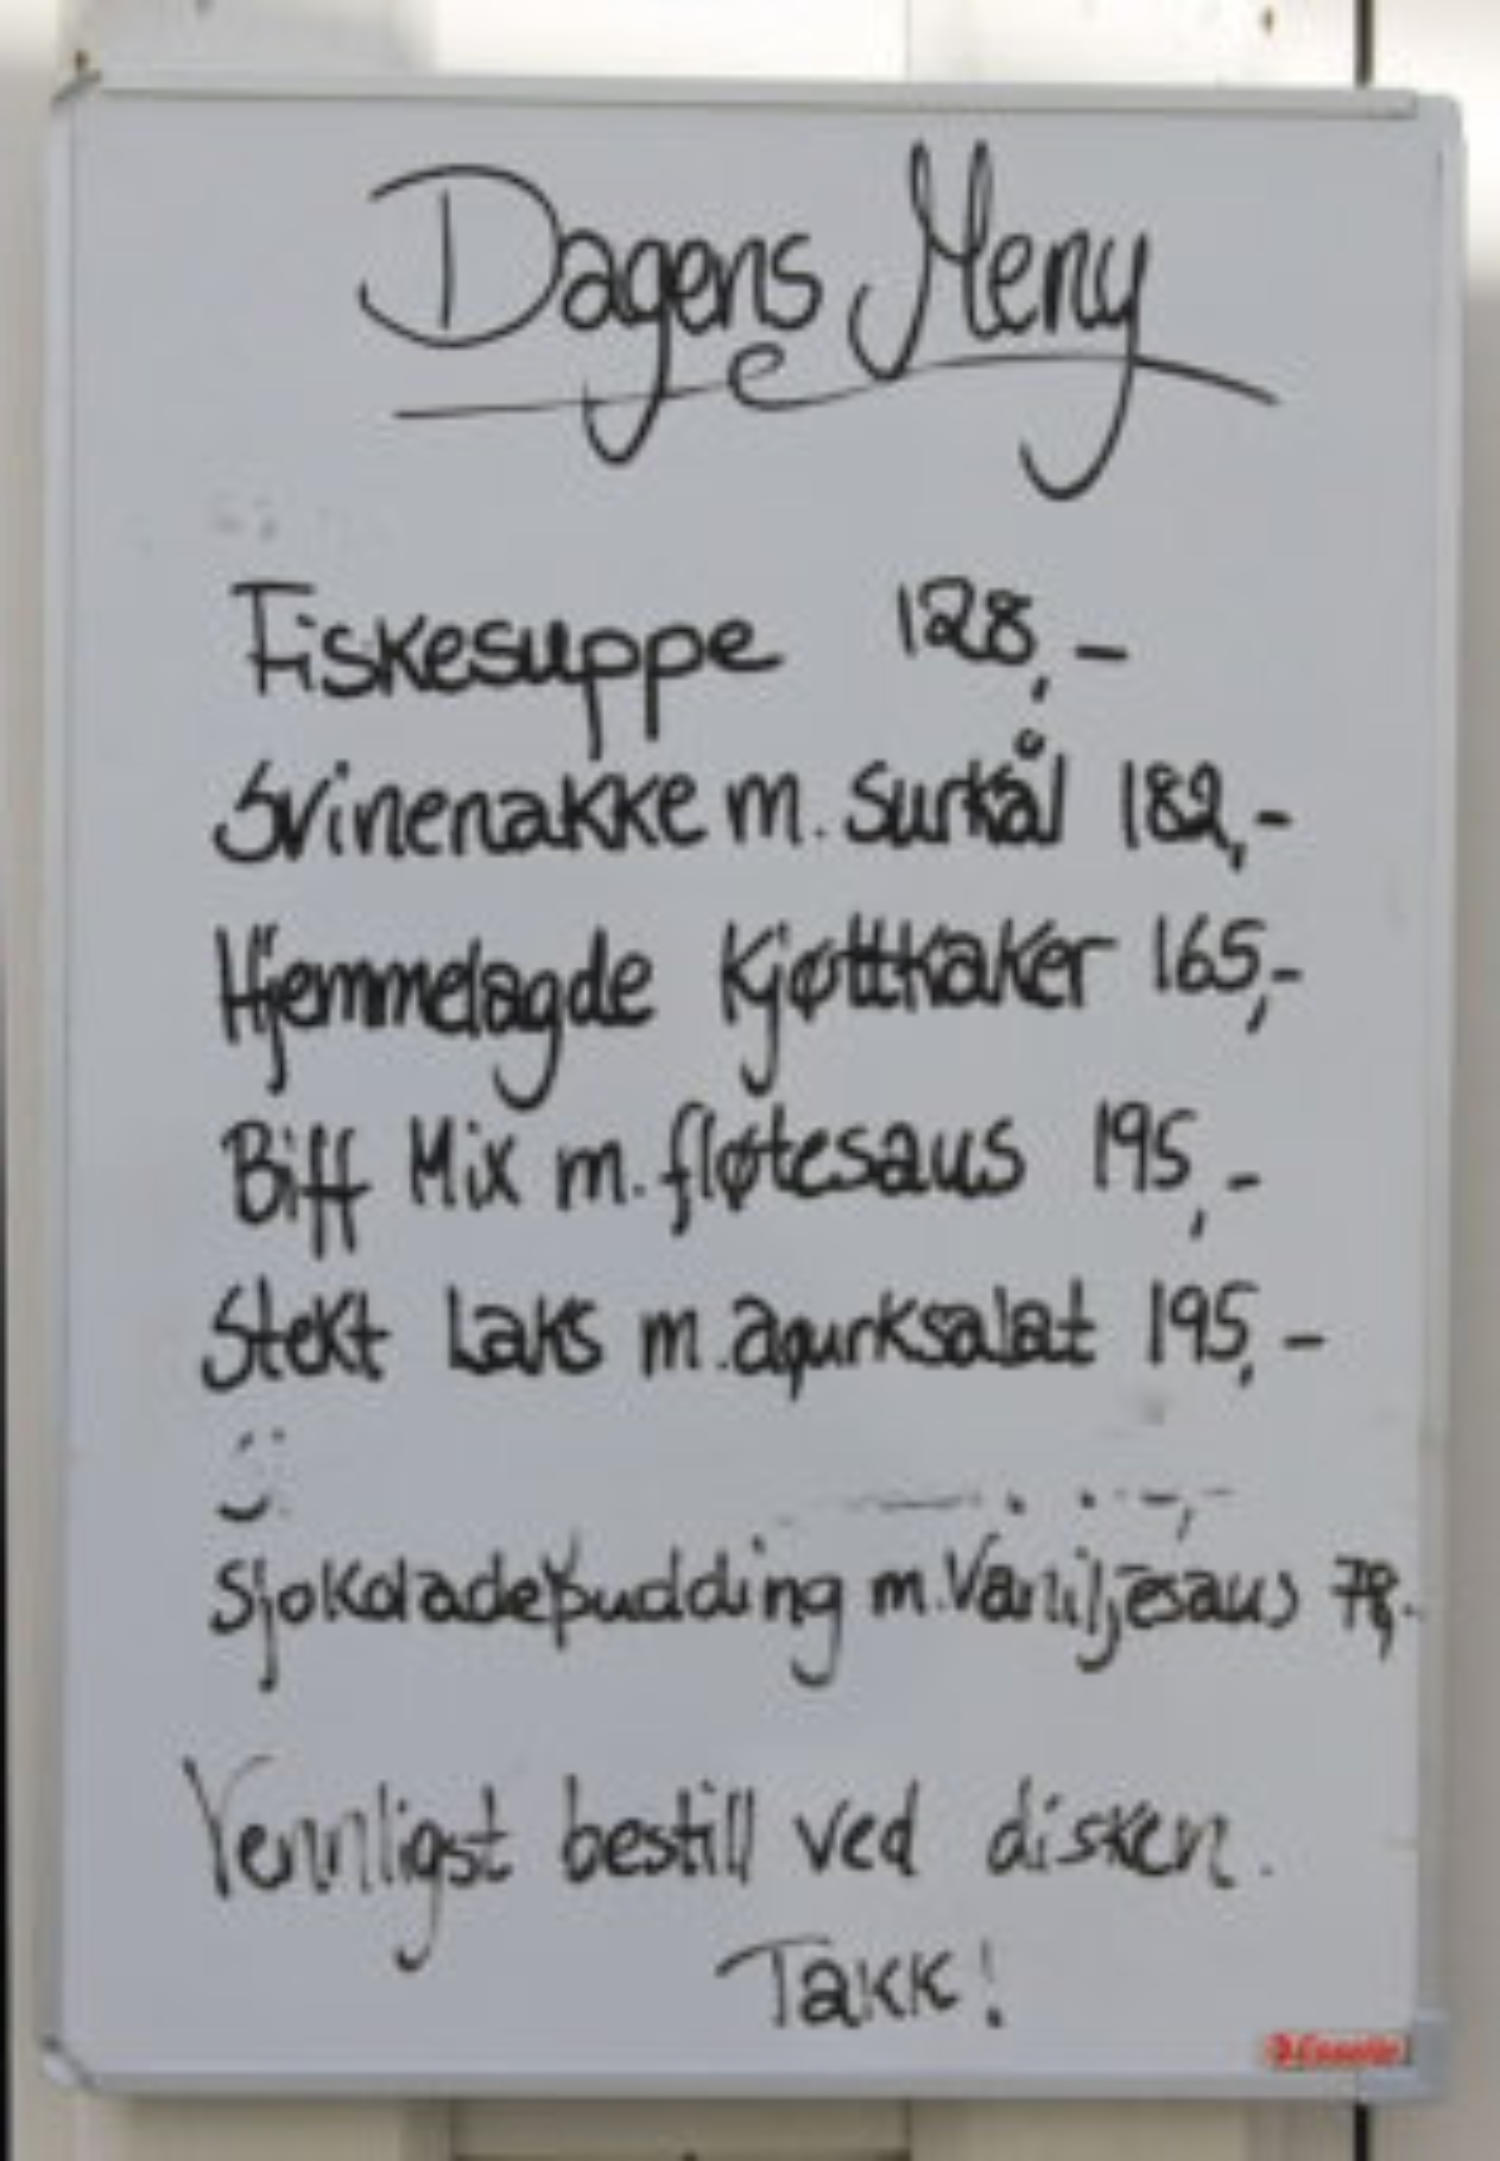 Dagens Meny
Fiskesuppe 128,-
Svinenakke m. Surkål 182,-
Hjemmelagde Kjøttkaker 165,-
Biff Mix m. fløtesaus 195,-
Stekt Laks m. agurksalat 195,-
Sjokoladepudding m. Vaniljesaus
Vennligst bestill ved disken.
Takk!